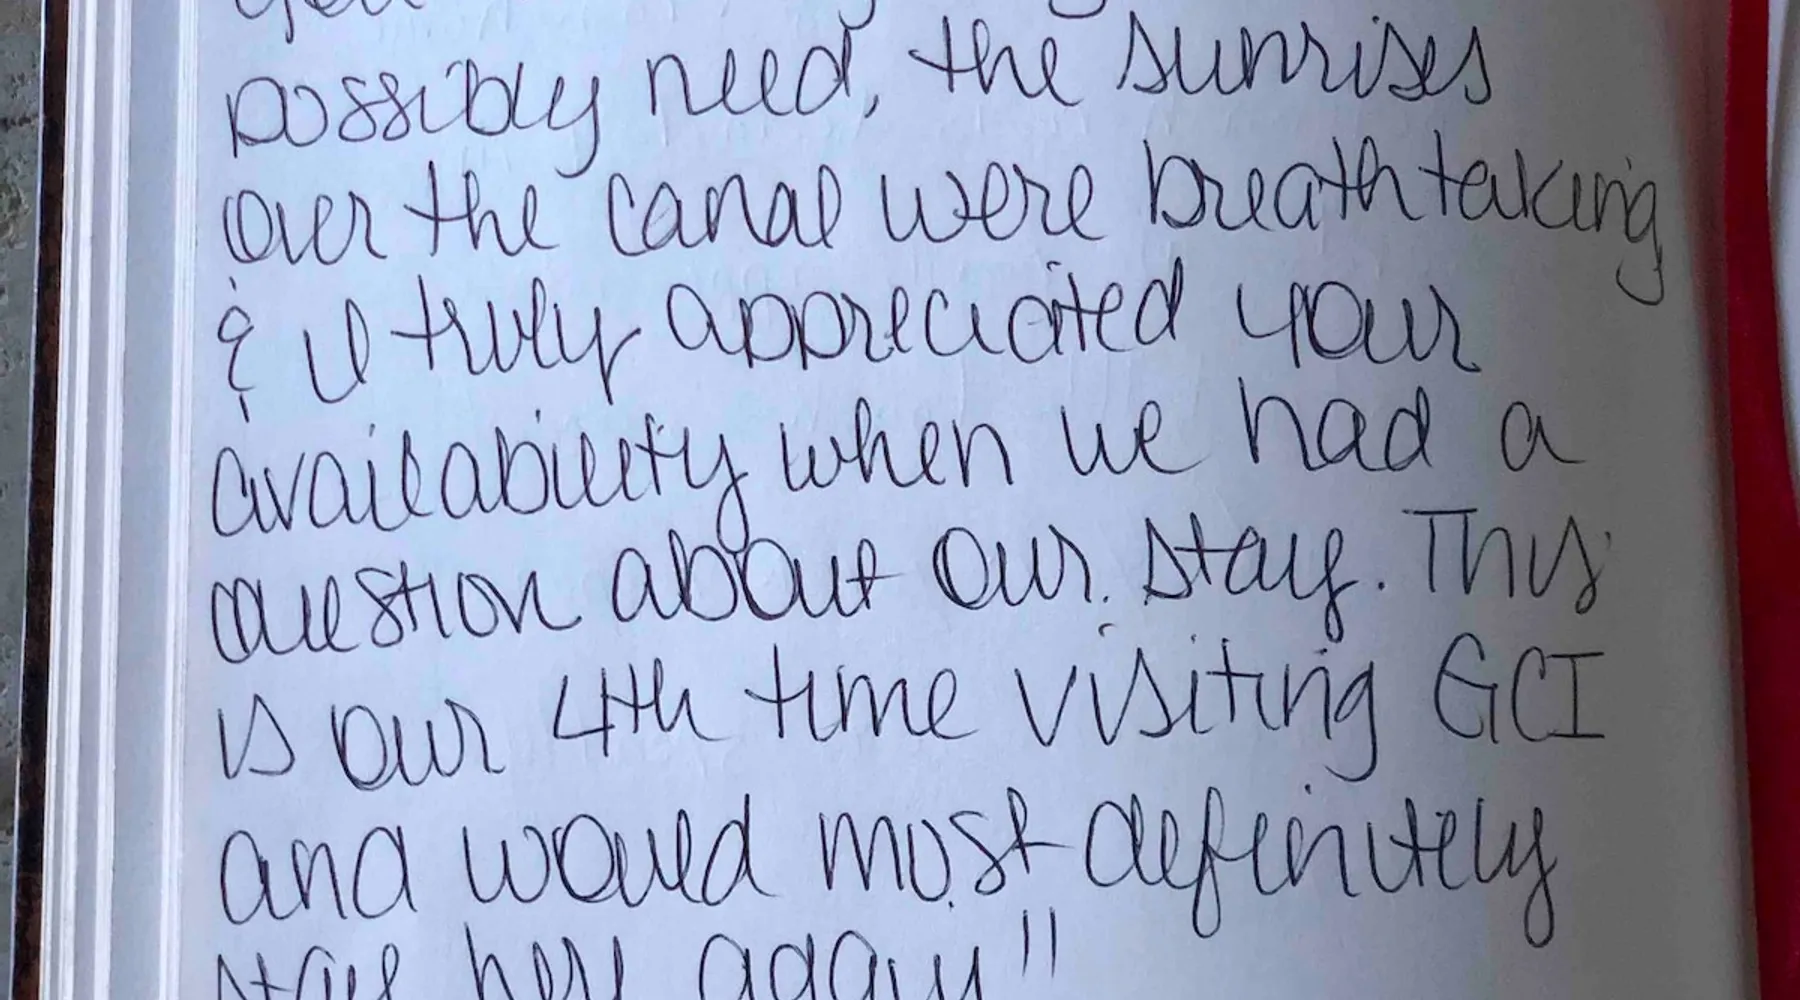 you
possibly need, the sunrises
over the canal were breathtaking
& I truly appreciated your
availability when we had a
question about our stay. This
is our 4th time visiting GCI
and would most definitely
stay here again!!